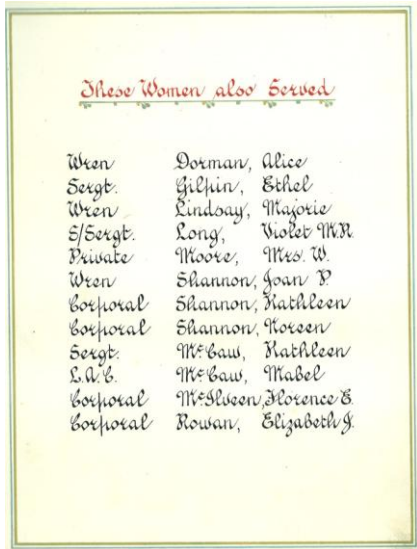 These Women also Served
Wren Dorman, Alice
Sergt. Gilpin, Ethel
Wren Lindsay, Majorie
S/Sergt. Long, Violet M.R.
Private Moore, Mrs. W.
Wren Shannon, Joan P.
Corporal Shannon, Kathleen
Corporal Shannon, Noreen
Sergt. McCaw, Kathleen
L.A.C. McCaw, Mabel
Corporal McIlveen, Florence E.
Corporal Rowan, Elizabeth J.